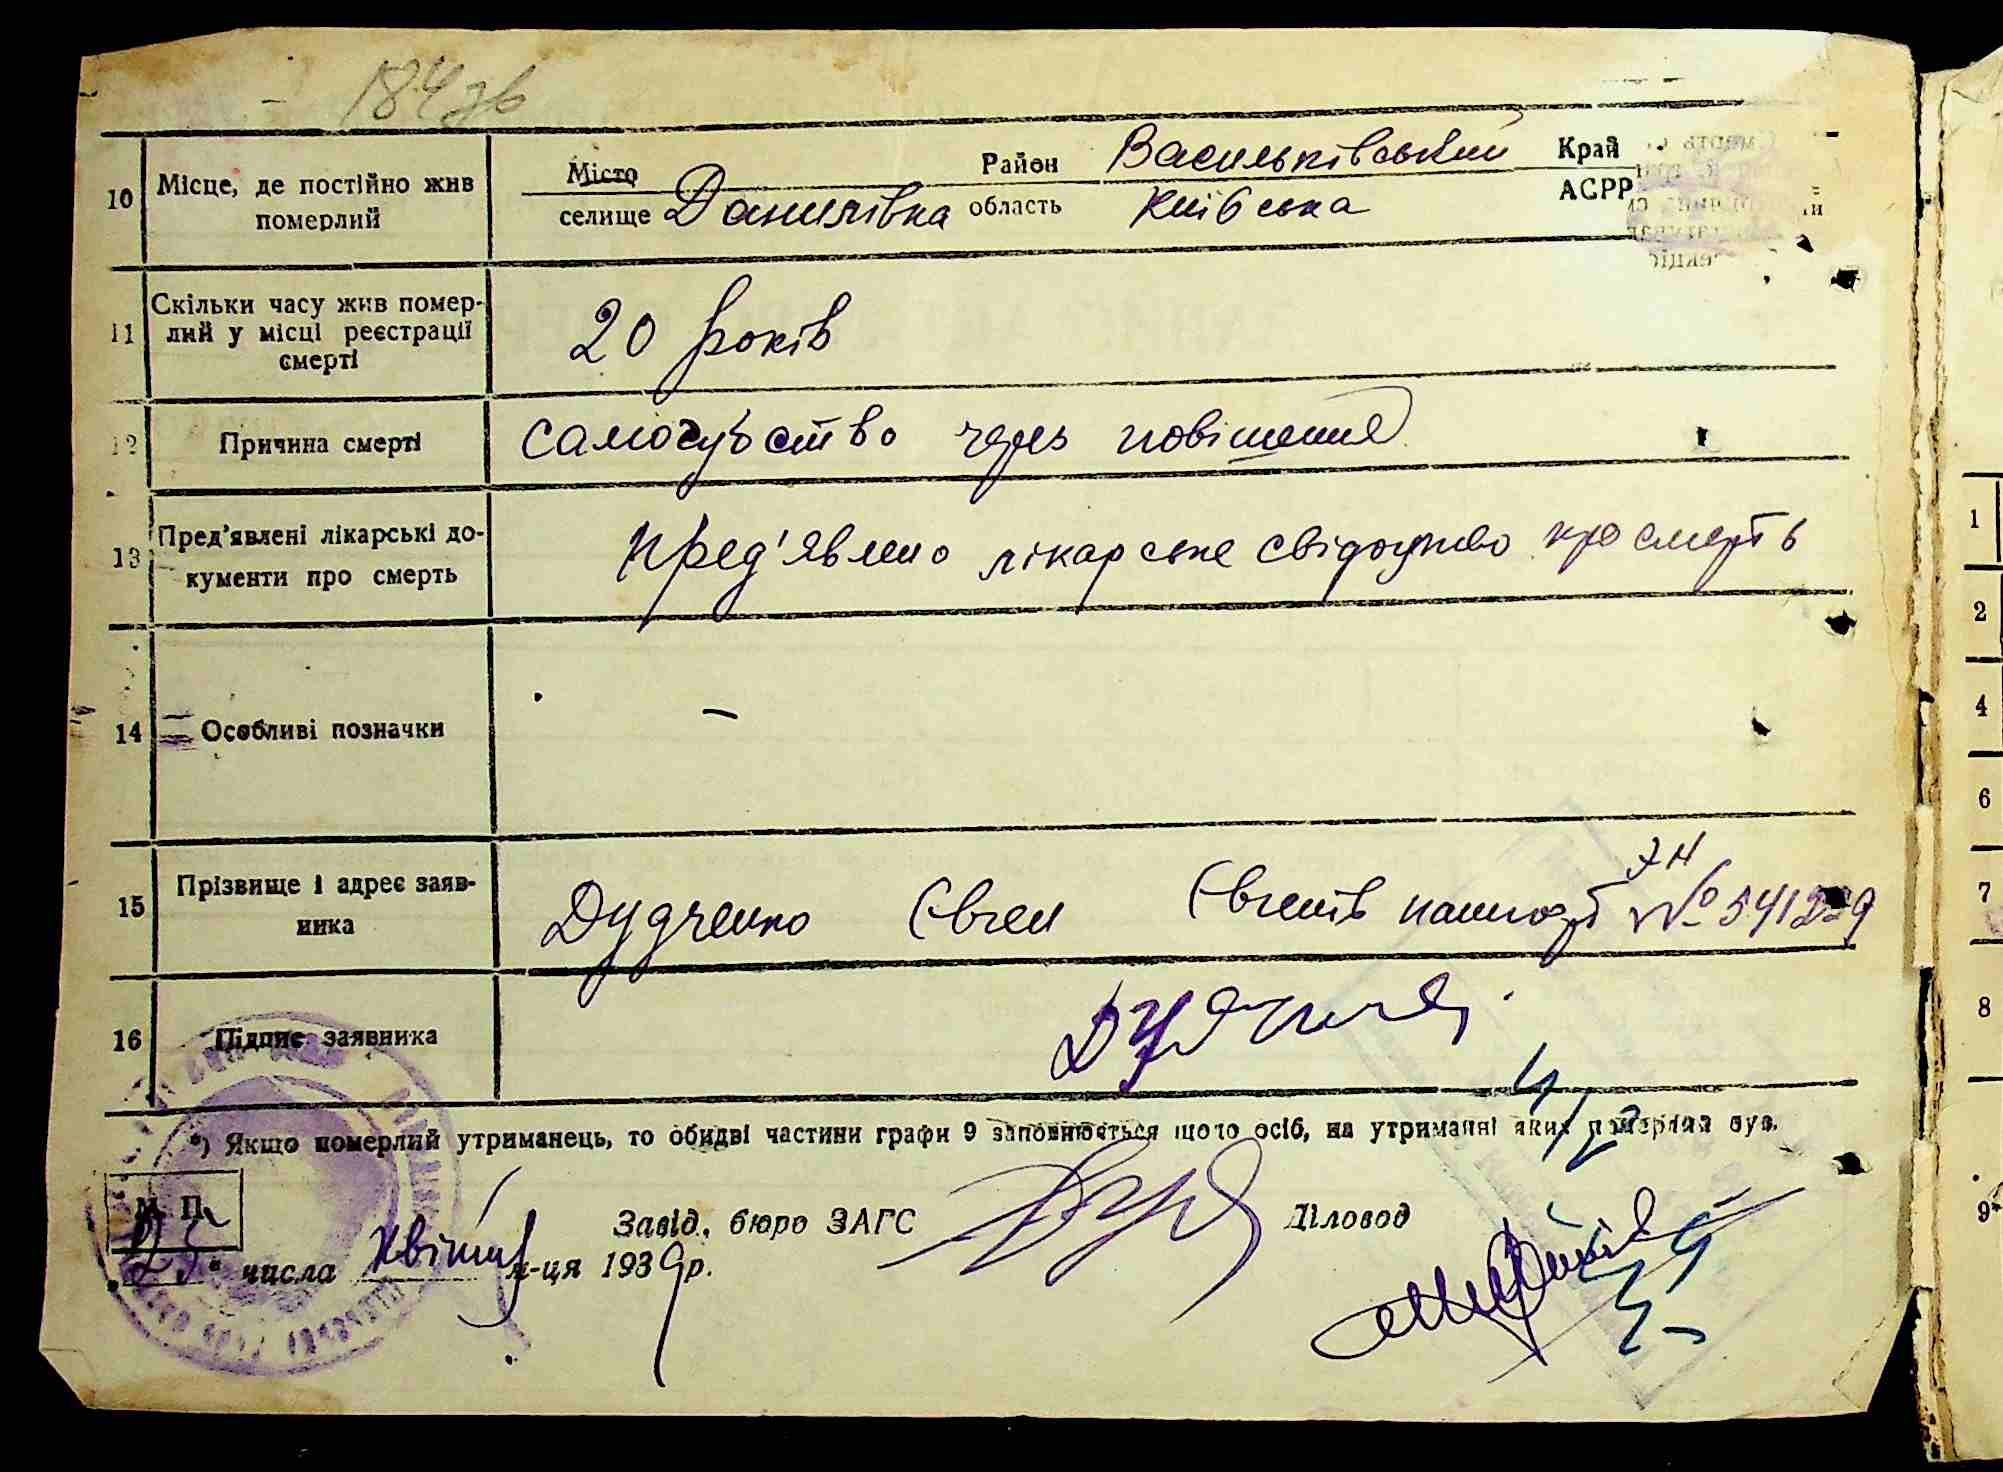 184 зв
10 Місце, де постійно жив померлий
Місто Район Васильківський Край
селище Данилівка область Київська АСРР
11 Скільки часу жив помер-
лий у місці реєстрації
смерті
20 років
12 Причина смерті
самогубство через повішення
13 Пред'явлені лікарські до-
кументи про смерть
Пред'явлено лікарське свідоцтво про смерть
14 Особливі позначки
–
15 Прізвище і адрес заяв-
ника
Дудченко Євген Євгенів паспорт ЭН № 541239
16 Підпис заявника
*) Якщо померлий утриманець, то обидві частини графи 9 заповнюється щодо осіб, на утриманні яких померлий був.
М. П.
Завід. бюро ЗАГС Діловод
"23" числа квітня м-ця 1939 р.
1
2
4
6
7
8
9*